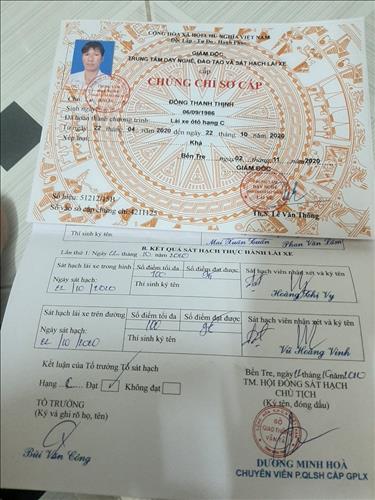 CỘNG HÒA XÃ HỘI CHỦ NGHĨA VIỆT NAM
Độc Lập - Tự Do - Hạnh Phúc
GIÁM ĐỐC
TRUNG TÂM DẠY NGHỀ, ĐÀO TẠO VÀ SÁT HẠCH LÁI XE
cấp
CHỨNG CHỈ SƠ CẤP
ĐỒNG THANH THỊNH
Sinh ngày 06/09/1986
Đã hoàn thành chương trình: Lái xe ôtô hạng C
Từ ngày 22 tháng 04 năm 2020 đến ngày 22 tháng 10 năm 2020
Xếp loại: Khá
Bến Tre, ngày 02 tháng 11 năm 2020
GIÁM ĐỐC
Số hiệu:
Th.S Lê Văn Thông
Số vào sổ cấp chứng chỉ:
Thí sinh ký tên Mai Xuân Phan Văn
B. KẾT QUẢ SÁT HẠCH THỰC HÀNH LÁI XE
Lần thứ 1: Ngày 22 tháng 10 năm 2020
Sát hạch lái xe trong hình Số điểm tối đa Số điểm đạt được Sát hạch viên nhận xét và ký tên
100
Ngày sát hạch: Thí sinh ký tên
22/10/2020
Hoàng Vy
Sát hạch lái xe trên đường Số điểm tối đa Số điểm đạt được Sát hạch viên nhận xét và ký tên
100
Ngày sát hạch: Thí sinh ký tên
22/10/2020
Vũ Hoàng Vinh
Kết luận của Tổ trưởng Tổ sát hạch
Hạng C Đạt ✓ Không đạt
Bến Tre, ngày 22 tháng 10 năm 2020
TM. HỘI ĐỒNG SÁT HẠCH
CHỦ TỊCH
(Ký tên, đóng dấu)
TỔ TRƯỞNG
(Ký và ghi rõ họ, tên)
Bùi Văn Công
DƯƠNG MINH HOÀ
CHUYÊN VIÊN P.QLSH CẤP GPLX